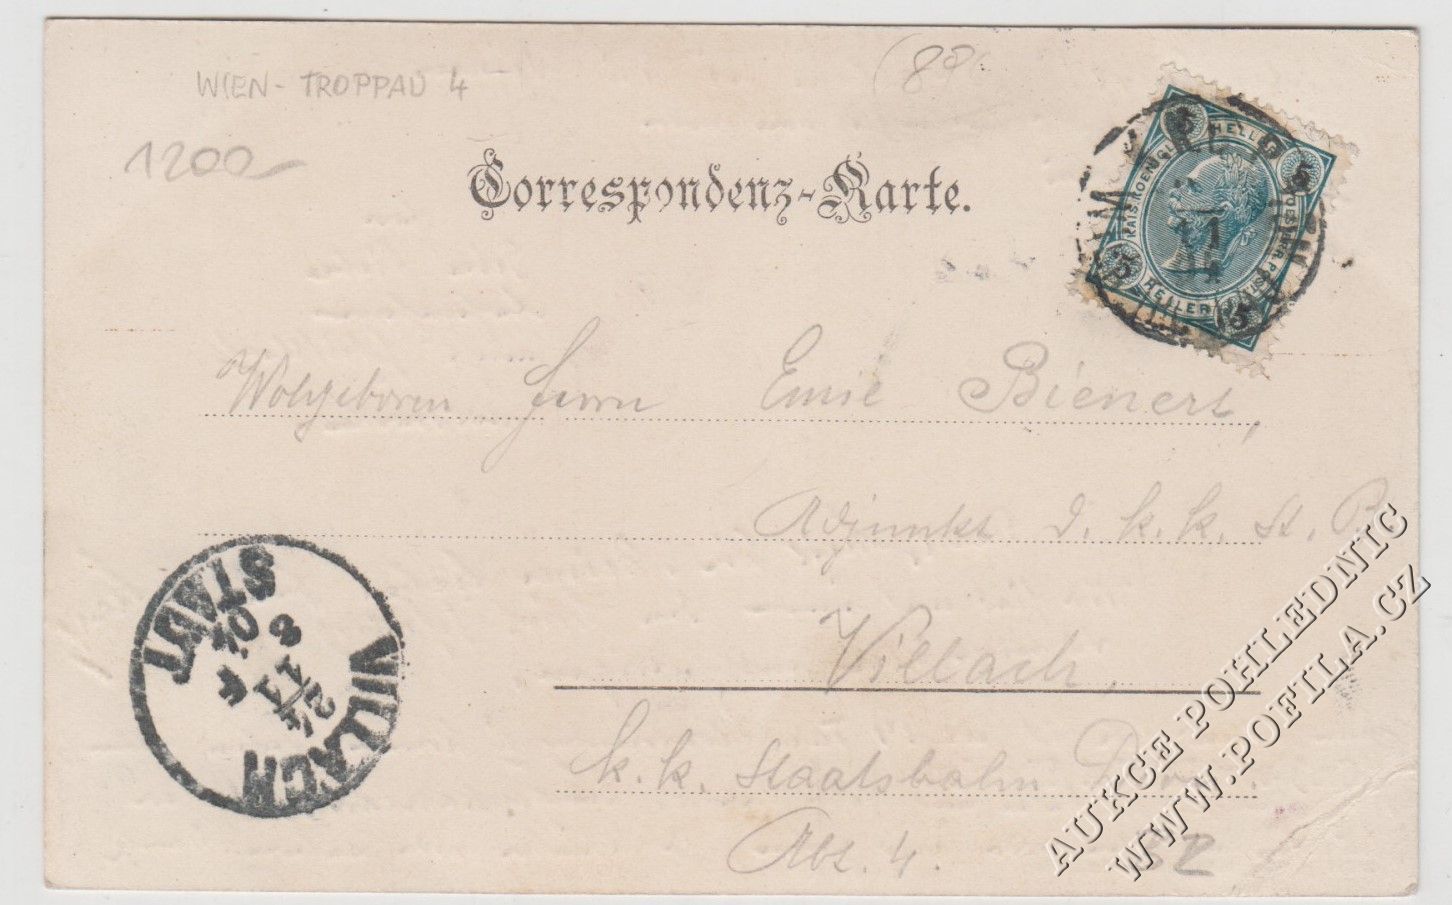 WIEN - TROPPAU 4
(80
1200-
Correspondenz-Karte.
5 HELLER 5
KAIS. KOENIGL. OESTERR. POST
5 HELLER 5
11
Wolgeboren Herrn Emil Bienert,
Adjunkt d. k. k. St. B.
Villach,
k. k. Staatsbahn Dion.
Abt. 4.
VILLACH
STADT
24
11
8
01
AUKCE POHLEDNIC
WWW.POFILA.CZ